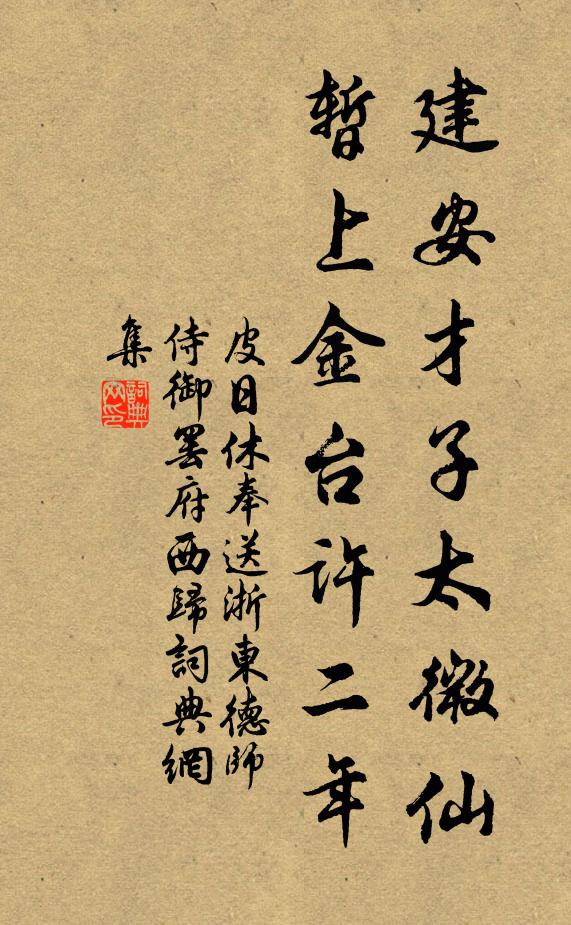 建安才子太微仙
暫上金台許二年
皮日休奉送浙東德師
侍御罢府西歸詞典網
集
詞典
网印